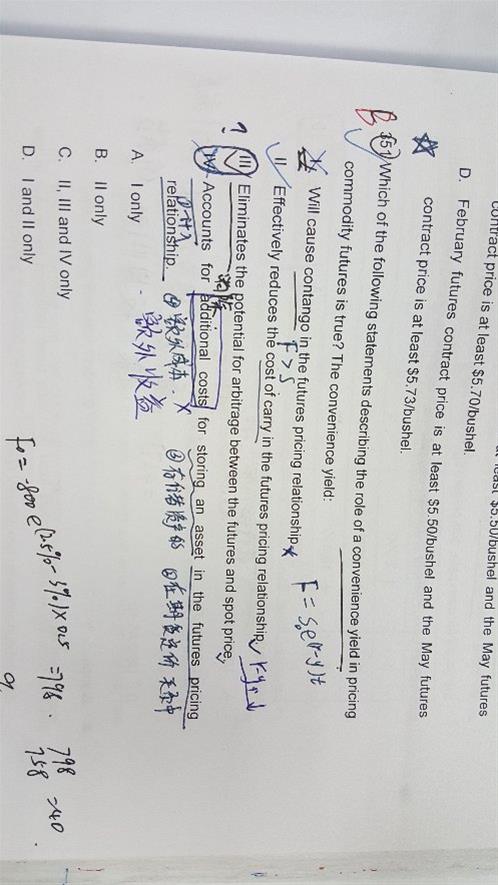 contract price is at least $5.70/bushel.
D. February futures contract price is at least $5.50/bushel and the May futures
contract price is at least $5.73/bushel.
B 151 Which of the following statements describing the role of a convenience yield in pricing
commodity futures is true? The convenience yield:
I. Will cause contango in the futures pricing relationship. ×
F>S
F = S₀e^(r-y)t
II. Effectively reduces the cost of carry in the futures pricing relationship. r-y↓
? III. Eliminates the potential for arbitrage between the futures and spot price.
IV. Accounts for additional costs for storing an asset in the futures pricing
relationship.
额外成本 ×
额外收益
A. I only
B. II only
C. II, III and IV only
D. I and II only
F₀ = 800 e^(2.5%-3%)×0.5 = 798.
798
758
40